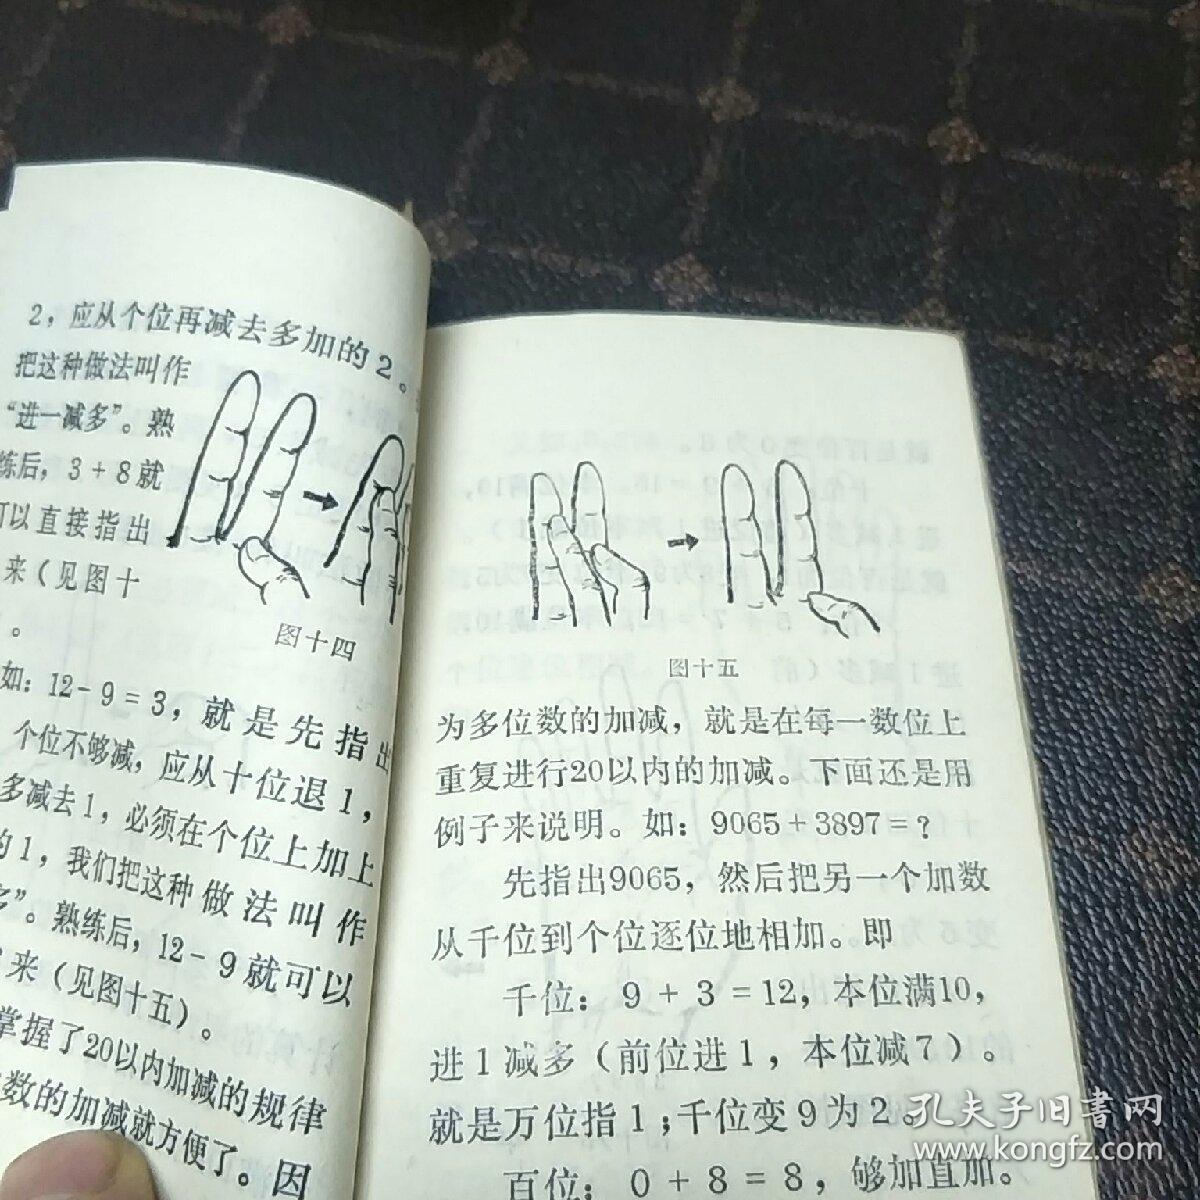 2，应从个位再减去多加的2。
把这种做法叫作
“进一减多”。熟
练后，3+8就
可以直接指出
来（见图十
。
图十四
如：12-9=3，就是先指出
个位不够减，应从十位退1，
多减去1，必须在个位上加上
的1，我们把这种做法叫作
多”。熟练后，12-9就可以
来（见图十五）。
掌握了20以内加减的规律
数的加减就方便了。因
图十五
为多位数的加减，就是在每一数位上
重复进行20以内的加减。下面还是用
例子来说明。如：9065+3897=？
先指出9065，然后把另一个加数
从千位到个位逐位地相加。即
千位：9+3=12，本位满10，
进1减多（前位进1，本位减7）。
就是万位指1；千位变9为2。
百位：0+8=8，够加直加。
孔夫子旧书网
www.kongfz.com